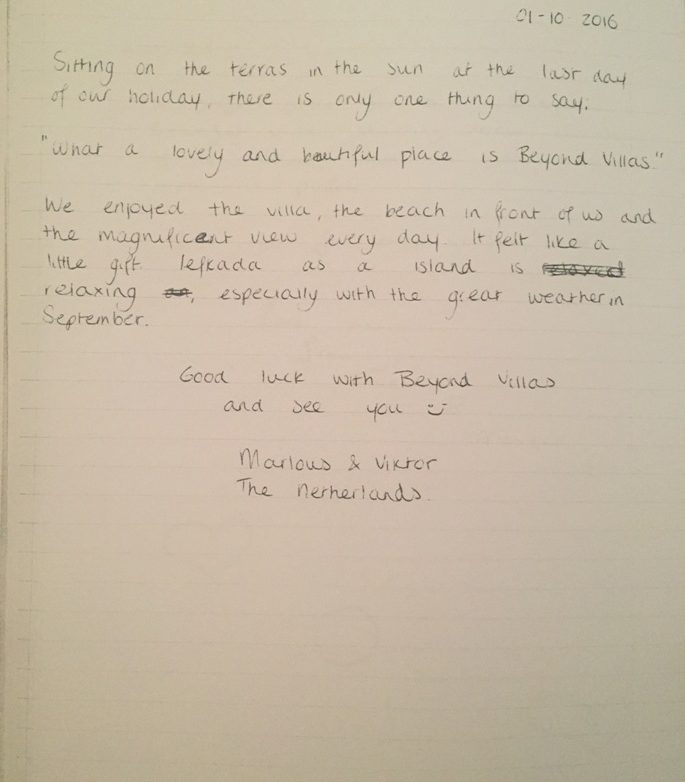 01-10-2016
Sitting on the terras in the sun at the last day
of our holiday, there is only one thing to say:
"What a lovely and beautiful place is Beyond Villas."
We enjoyed the villa, the beach in front of us and
the magnificent view every day. It felt like a
little gift. Lefkada as a island is relaxed
relaxing, especially with the great weather in
September.
Good luck with Beyond Villas
and see you :)
Marlous & Viktor
The Netherlands.